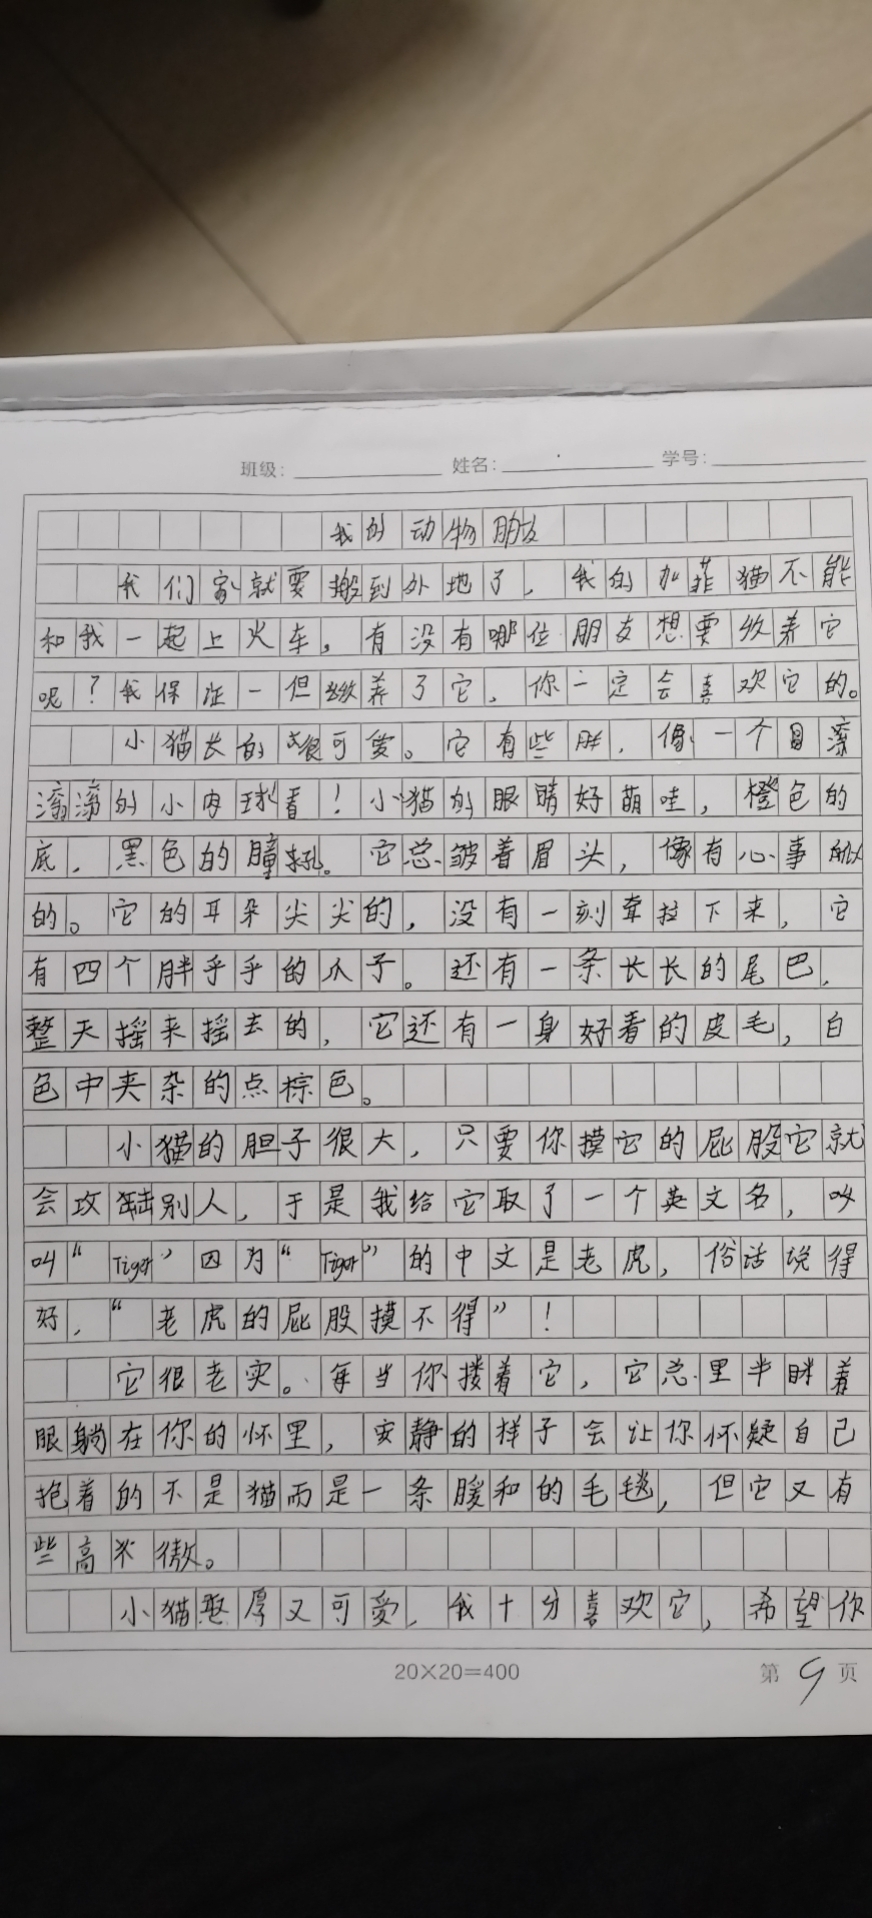 班级： 姓名： 学号：
我的动物朋友
我们家就要搬到外地了，我的加菲猫不能
和我一起上火车，有没有哪位朋友想要收养它
呢？我保证一但收养了它，你一定会喜欢它的。
小猫长的很可爱。它有些胖，像一个圆滚
滚滚的小肉球看！小猫的眼睛好萌哇，橙色的
底，黑色的瞳孔。它总皱着眉头，像有心事似
的。它的耳朵尖尖的，没有一刻耷拉下来，它
有四个胖乎乎的爪子。还有一条长长的尾巴，
整天摇来摇去的，它还有一身好看的皮毛，白
色中夹杂的点棕色。
小猫的胆子很大，只要你摸它的屁股它就
会攻击别人，于是我给它取了一个英文名，叫
叫“Tiger”因为“Tiger”的中文是老虎，俗话说得
好，“老虎的屁股摸不得”！
它很老实。每当你搂着它，它总里半眯着
眼躺在你的怀里，安静的样子会让你怀疑自己
抱着的不是猫而是一条暖和的毛毯，但它又有
些高傲。
小猫憨厚又可爱，我十分喜欢它，希望你
20×20=400 第 9 页